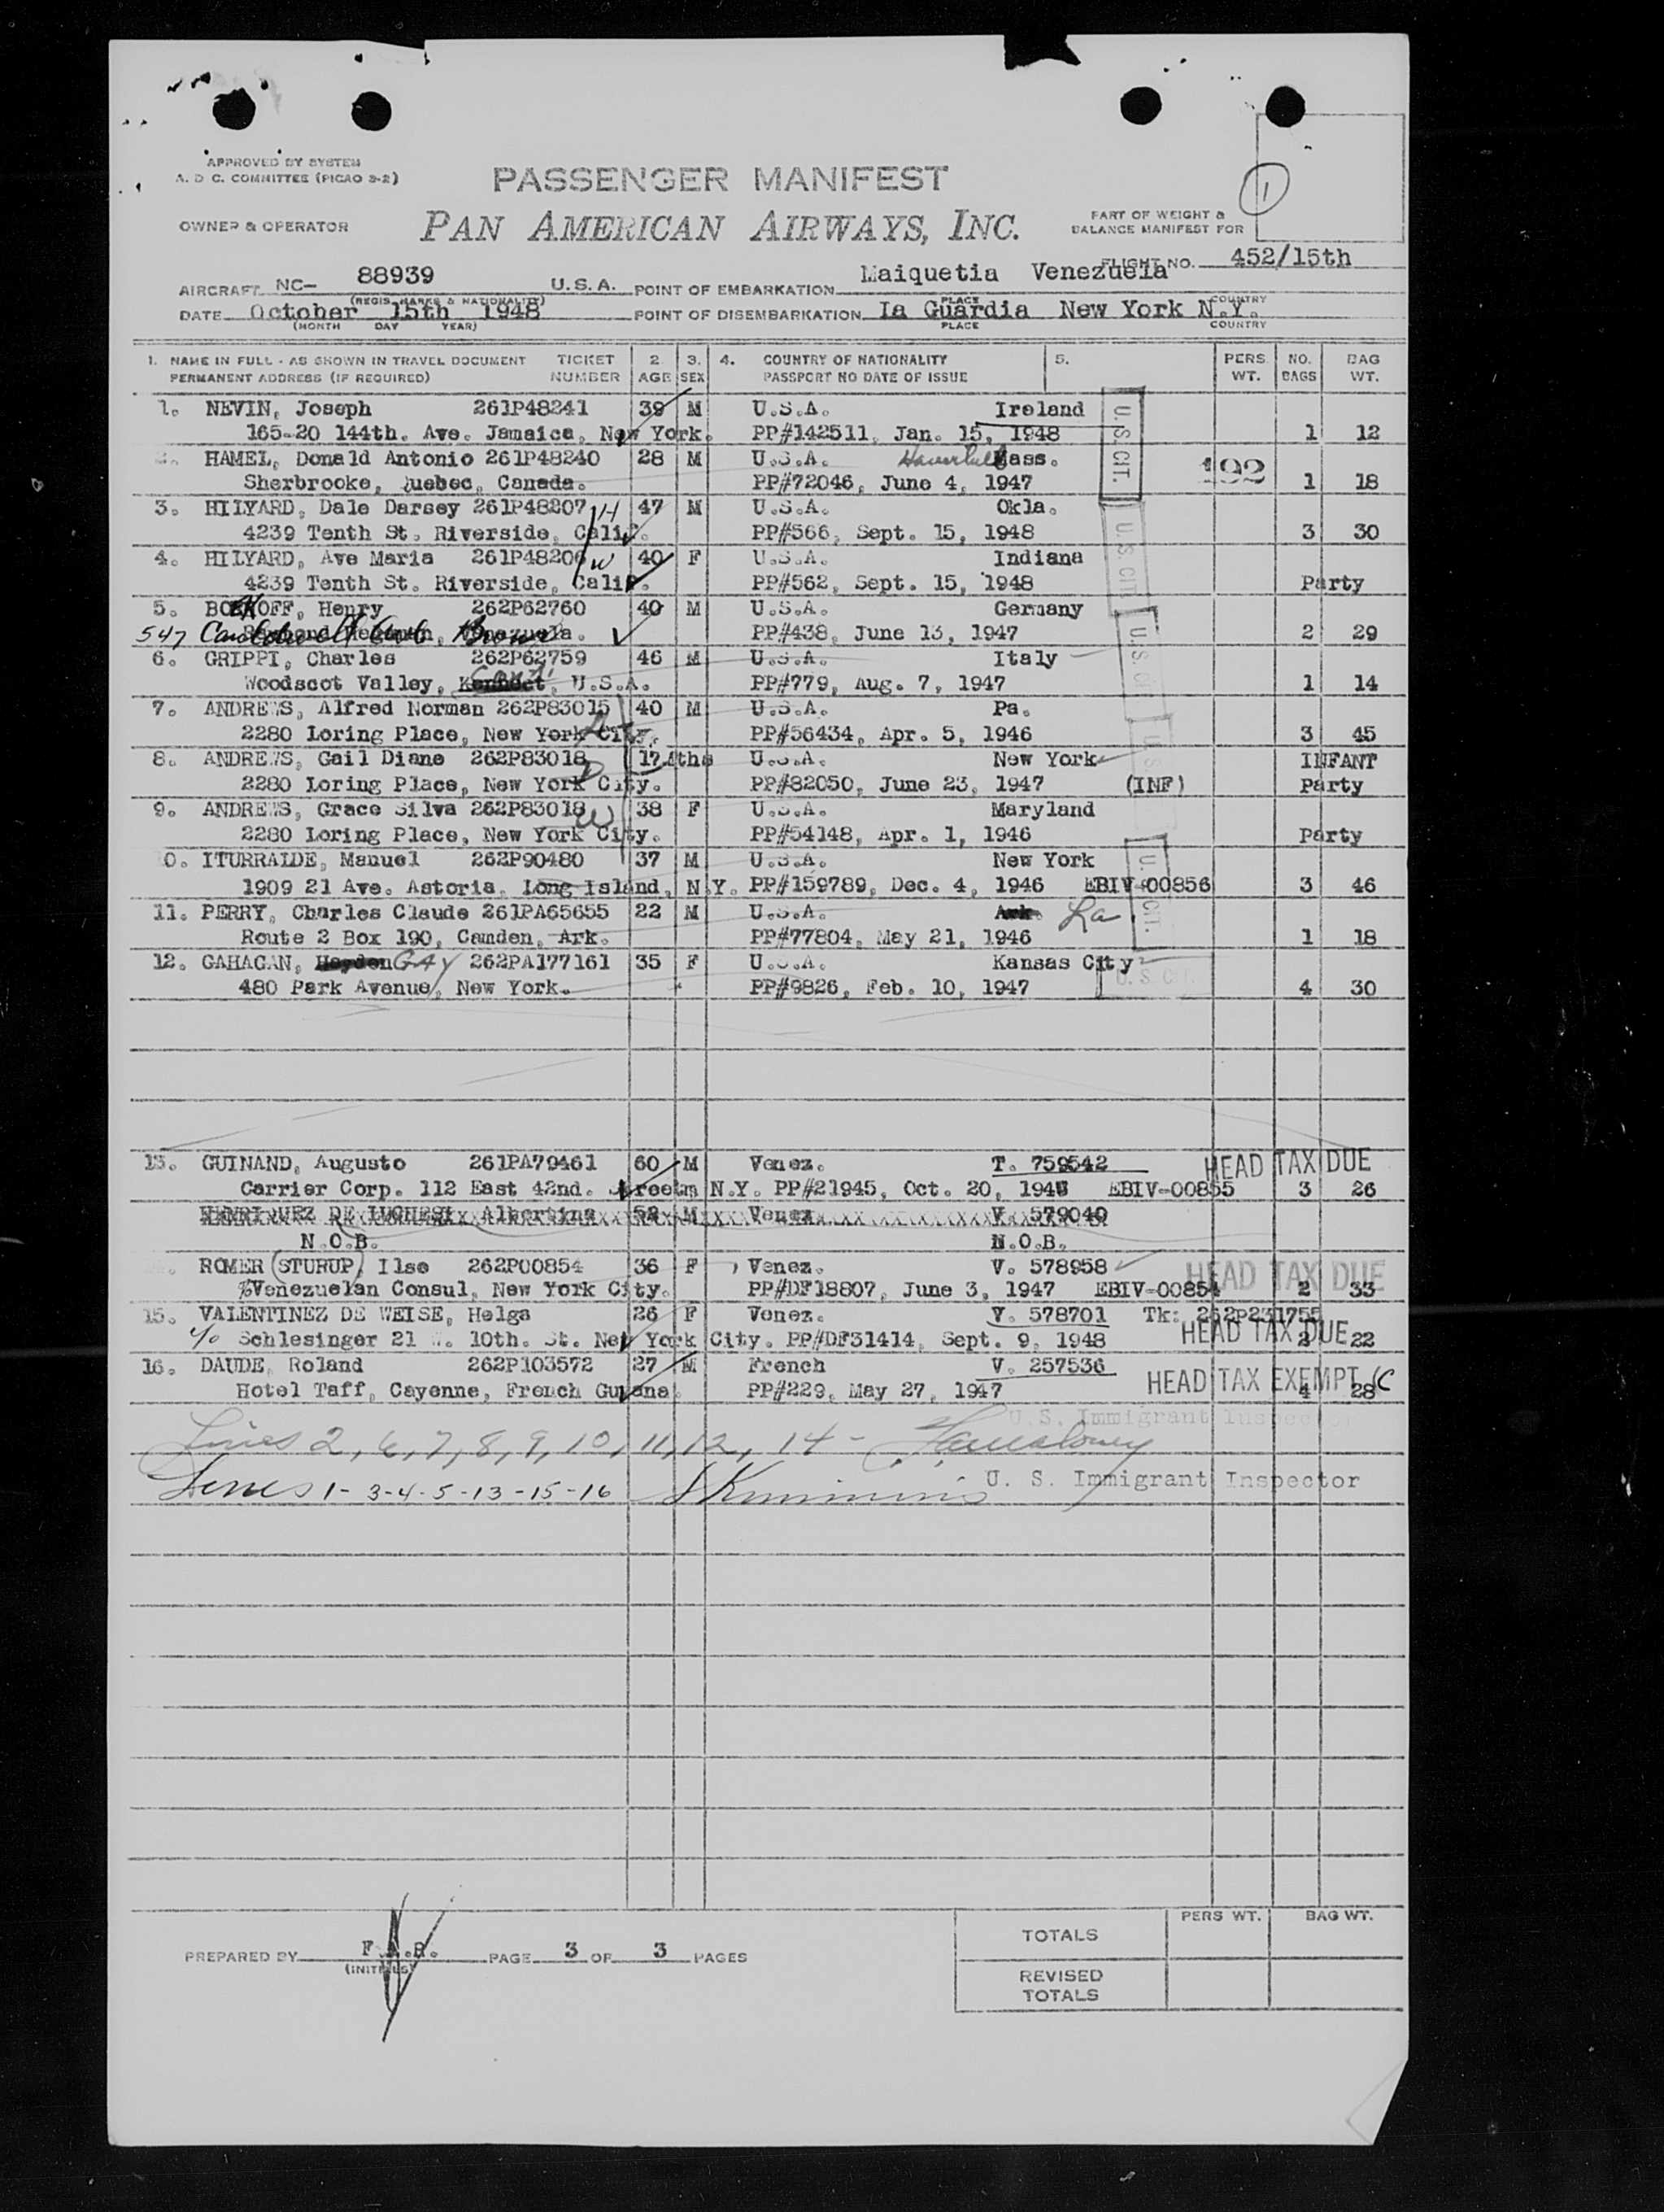 APPROVED BY SYSTEM
A. D C. COMMITTEE (PICAO 9-2)
PASSENGER MANIFEST
1
OWNER & OPERATOR
PAN AMERICAN AIRWAYS, INC.
PART OF WEIGHT &
BALANCE MANIFEST FOR
FLIGHT NO. 452/15th
AIRCRAFT NC- 88939 U.S.A. POINT OF EMBARKATION Maiquetia Venezuela
(REGIS. MARKS & NATIONALITY) PLACE COUNTRY
DATE October 15th 1948 POINT OF DISEMBARKATION La Guardia New York N.Y.
(MONTH DAY YEAR) PLACE COUNTRY
1. NAME IN FULL - AS SHOWN IN TRAVEL DOCUMENT TICKET 2. 3. 4. COUNTRY OF NATIONALITY 5. PERS. NO. BAG
PERMANENT ADDRESS (IF REQUIRED) NUMBER AGE SEX PASSPORT NO DATE OF ISSUE WT. BAGS WT.
1. NEVIN, Joseph 261P48241 39 M U.S.A. Ireland
165-20 144th. Ave. Jamaica, New York. PP#142511, Jan. 15, 1948 1 12
2. HAMEL, Donald Antonio 261P48240 28 M U.S.A. Mass.
192
Sherbrooke, Quebec, Canada. PP#72046, June 4, 1947 1 18
3. HILYARD, Dale Darsey 261P48207 H 47 M U.S.A. Okla.
4239 Tenth St. Riverside, Calif. PP#566, Sept. 15, 1948 3 30
4. HILYARD, Ave Maria 261P48206 W 40 F U.S.A. Indiana
4239 Tenth St. Riverside, Calif. PP#562, Sept. 15, 1948 Party
5. BOEKOFF, Henry 262P62760 40 M U.S.A. Germany
547 PP#438, June 13, 1947 2 29
6. GRIPPI, Charles 262P62759 46 M U.S.A. Italy
Woodscot Valley, Conn. U.S.A. PP#779, Aug. 7, 1947 1 14
7. ANDREWS, Alfred Norman 262P83015 40 M U.S.A. Pa.
2280 Loring Place, New York City. PP#56434, Apr. 5, 1946 3 45
8. ANDREWS, Gail Diane 262P83018 17 Mths U.S.A. New York INFANT
2280 Loring Place, New York City. PP#82050, June 23, 1947 (INF) Party
9. ANDREWS, Grace Silva 262P83018 W 38 F U.S.A. Maryland
2280 Loring Place, New York City. PP#54148, Apr. 1, 1946 Party
0. ITURRALDE, Manuel 262P90480 37 M U.S.A. New York
1909 21 Ave. Astoria, Long Island, N.Y. PP#159789, Dec. 4, 1946 EBIV-00856 3 46
11. PERRY, Charles Claude 261PA65655 22 M U.S.A. Ark. La
Route 2 Box 190, Camden, Ark. PP#77804, May 21, 1946 1 18
12. GAHAGAN, Hayden GAY 262PA177161 35 F U.S.A. Kansas City
480 Park Avenue, New York. PP#9826, Feb. 10, 1947 4 30
U.S. CIT.
U.S. CIT.
U.S. CIT.
U.S. CIT.
U.S. CIT.
U.S. CIT.
13. GUINAND, Augusto 261PA79461 60 M Venez. T. 759542 HEAD TAX DUE
Carrier Corp. 112 East 42nd. Street, N.Y. PP#21945, Oct. 20, 194 EBIV-00855 3 26
HENRIQUEZ DE LUCHESI, Albertina 52 M Venez V. 579040
N.O.B. N.O.B.
ROMER (STURUP) Ilse 262P00854 36 F Venez. V. 578958 HEAD TAX DUE
%Venezuelan Consul, New York City. PP#DF18807, June 3, 1947 EBIV-00854 2 33
15. VALENTINEZ DE WEISE, Helga 26 F Venez. V. 578701 Tk: 262P231755
c/o Schlesinger 21 W. 10th. St. New York City. PP#DF31414, Sept. 9, 1948 HEAD TAX DUE 2 22
16. DAUDE, Roland 262P103572 27 M French V. 257536
Hotel Taff, Cayenne, French Guyana. PP#229, May 27, 1947 HEAD TAX EXEMPT 4 28
U. S. Immigrant Inspector
Lines 2, 6, 7, 8, 9, 10, 11, 12, 14 -
Lines 1- 3-4-5-13-15-16
U. S. Immigrant Inspector
PREPARED BY F.A.R. PAGE 3 OF 3 PAGES
(INITIALS)
PERS WT. BAG WT.
TOTALS
REVISED
TOTALS